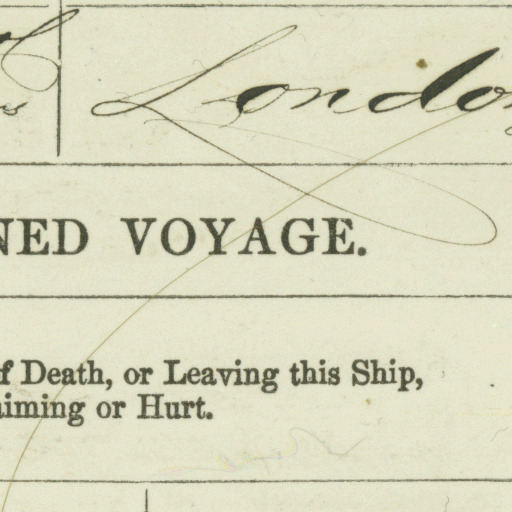 London
NED VOYAGE.
f Death, or Leaving this Ship,
iming or Hurt.